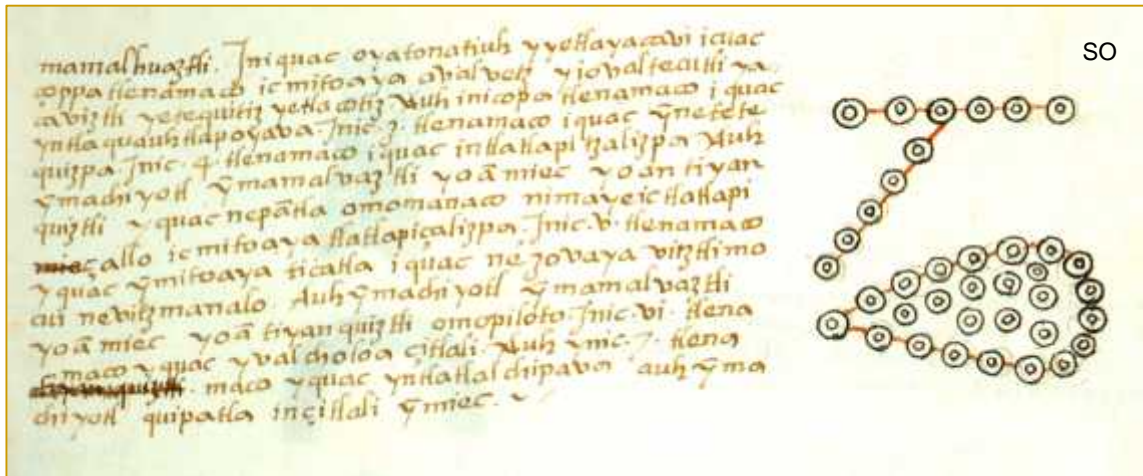 mamalhuaztli. Jniquac oyatonatiuh yyetlayacavi icuac
oppa tlenamaco ic mitoaya ovalvetz yiovaltecutli ya
caviztli yetequitiz yetlacotiz Auh inicopa tlenamaco iquac
yntlaquauhtlapoyava. Jnic. 3. tlenamaco iquac ỹnetete
quizpa. Jnic. 4. tlenamaco iquac intlatlapitzalizpa Auh
ỹmachiyotl ỹmamalvaztli yoã miec yoan tiyan
quiztli yquac nepãtla omomanaco nimayeictlatlapi
çallo ic mitoaya tlatlapicalizpa. Jnic. v. tlenamaco
yquac ỹmitoaya ticatla iquac neçovaya vitztli mo
cui nevitzmanalo. Auh ỹmachiyotl ỹmamalvaztli
yoã miec yoã tiyanquiztli omopiloto. Jnic. vi. tlena
maco yquac yvalcholoa çitlali. Auh ynic. 7. tlena
maco yquac yntlatlalchipava auh ỹma
chiyotl quipatla in çitlali ỹmiec.
SO